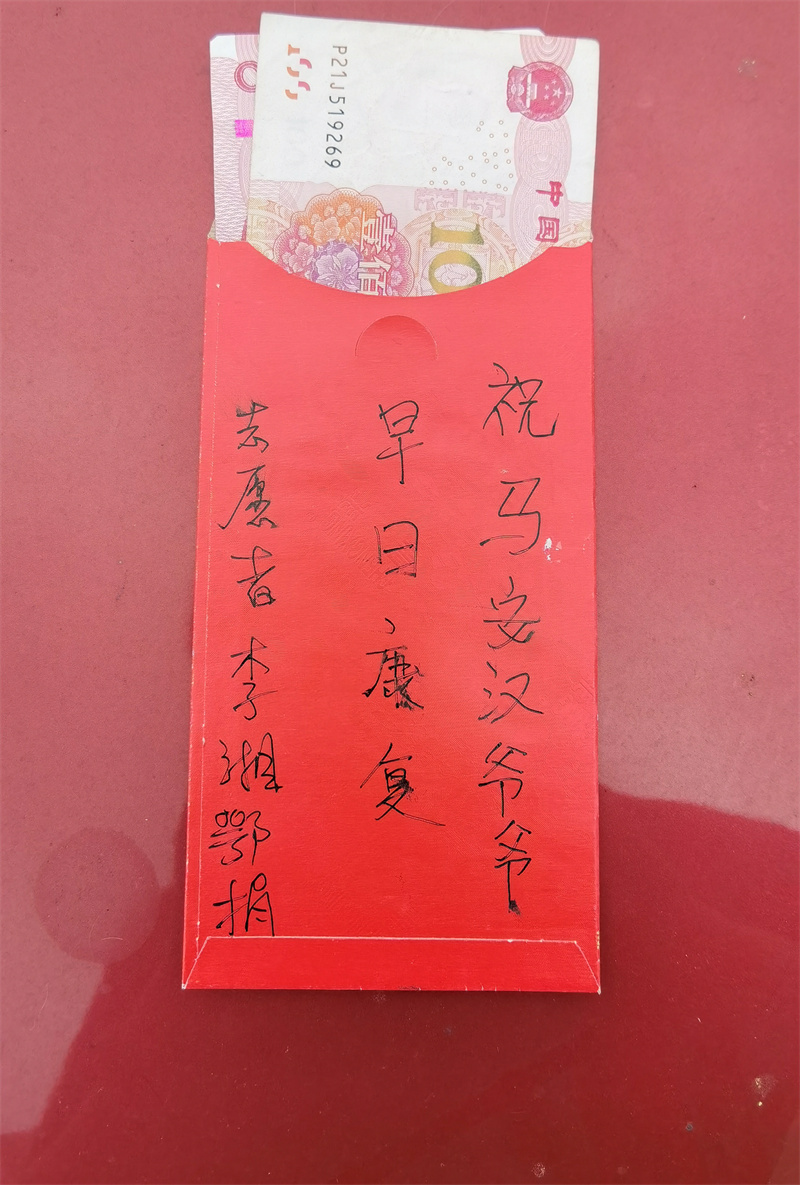 P21J519269
中国
壹佰
10
祝马安汉爷爷
早日康复
志愿者李湘鄂捐